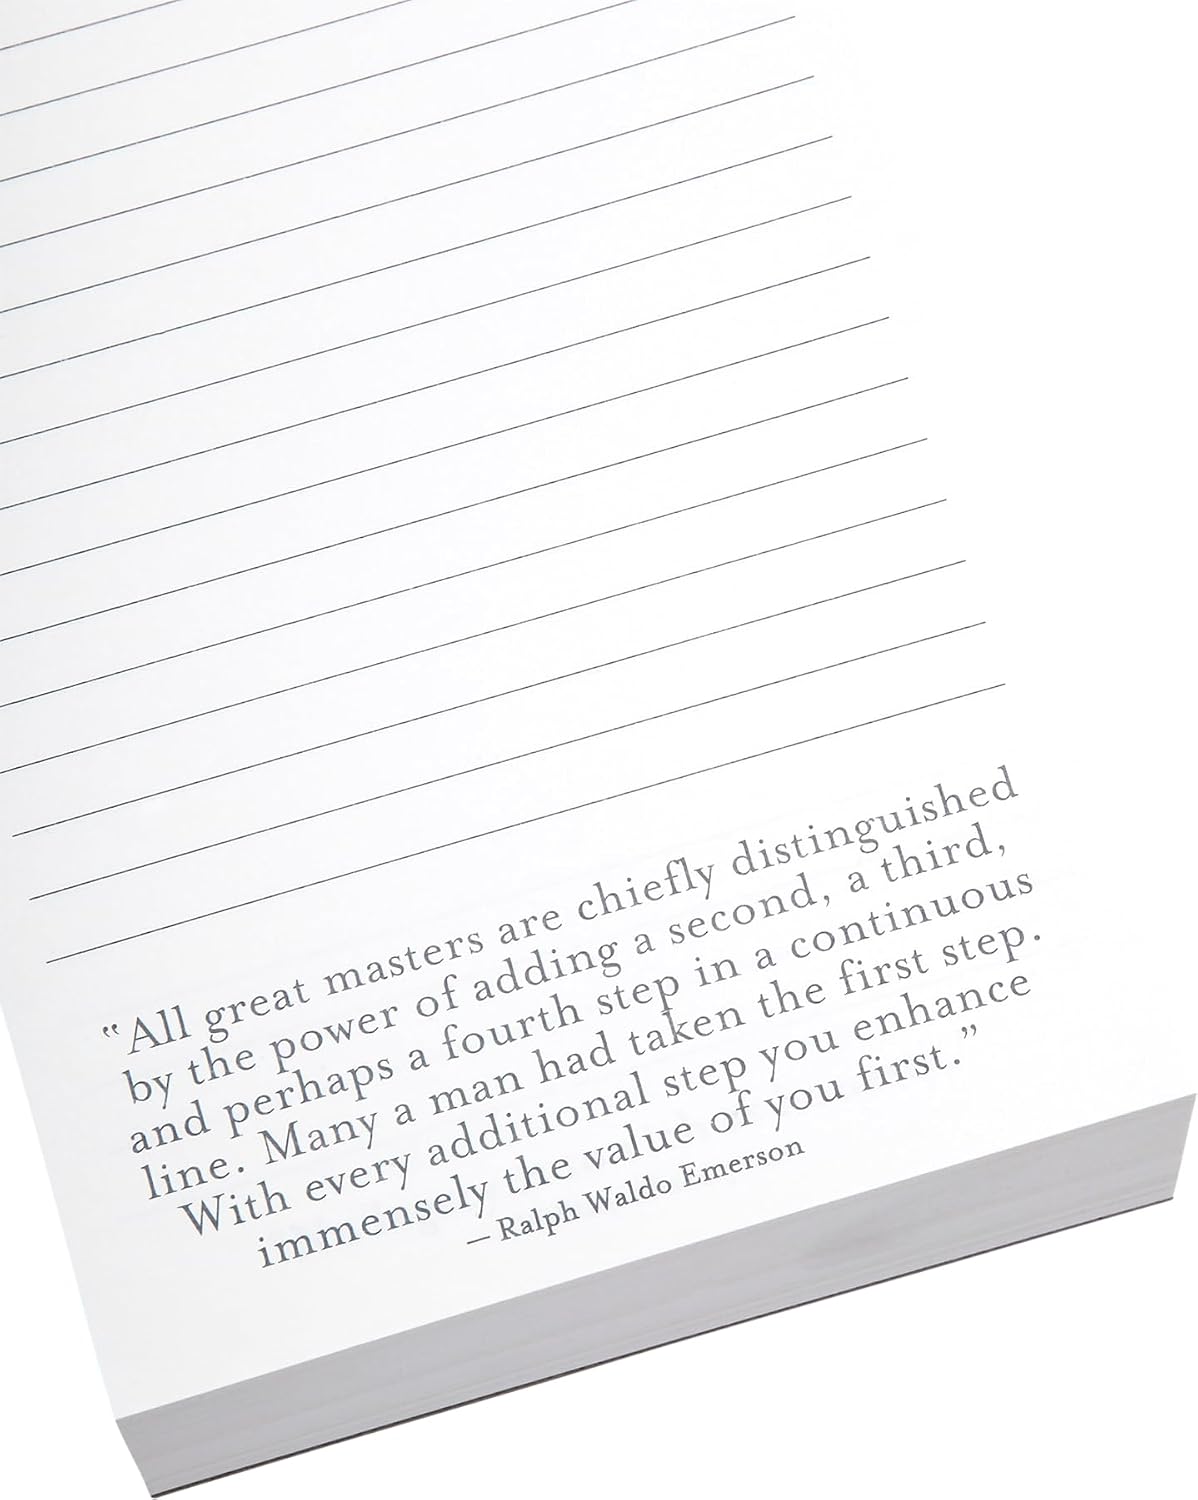 “All great masters are chiefly distinguished
by the power of adding a second, a third,
and perhaps a fourth step in a continuous
line. Many a man had taken the first step.
With every additional step you enhance
immensely the value of you first.”
— Ralph Waldo Emerson